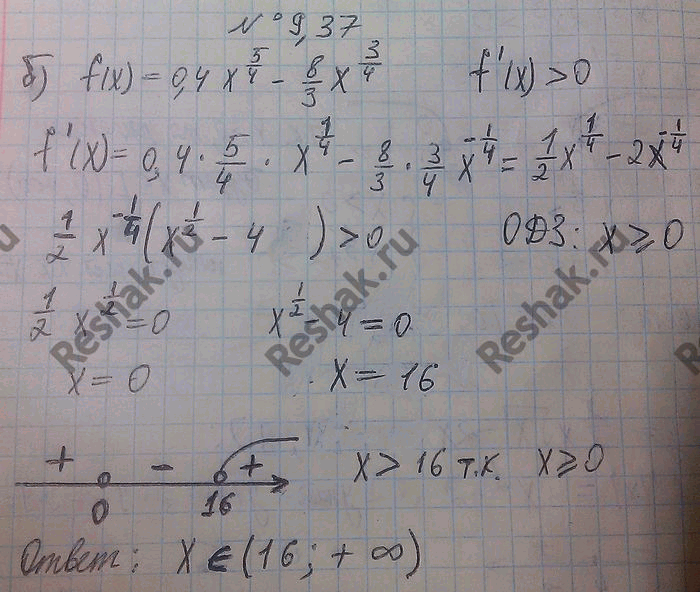 N°9,37
б) f(x) = 0,4 x^{5/4} - 8/3 x^{3/4} f'(x) > 0
f'(x) = 0,4 · 5/4 · x^{1/4} - 8/3 · 3/4 x^{-1/4} = 1/2 x^{1/4} - 2x^{-1/4}
1/2 x^{-1/4} (x^{1/2} - 4 ) > 0 ОДЗ: x ≥ 0
1/2 x^{1/2} = 0 x^{1/2} - 4 = 0
x = 0 x = 16
+ - +
0 16
x > 16 т.к. x ≥ 0
Ответ: x ∈ (16; + ∞)
Reshak.ru
Reshak.ru
Reshak.ru